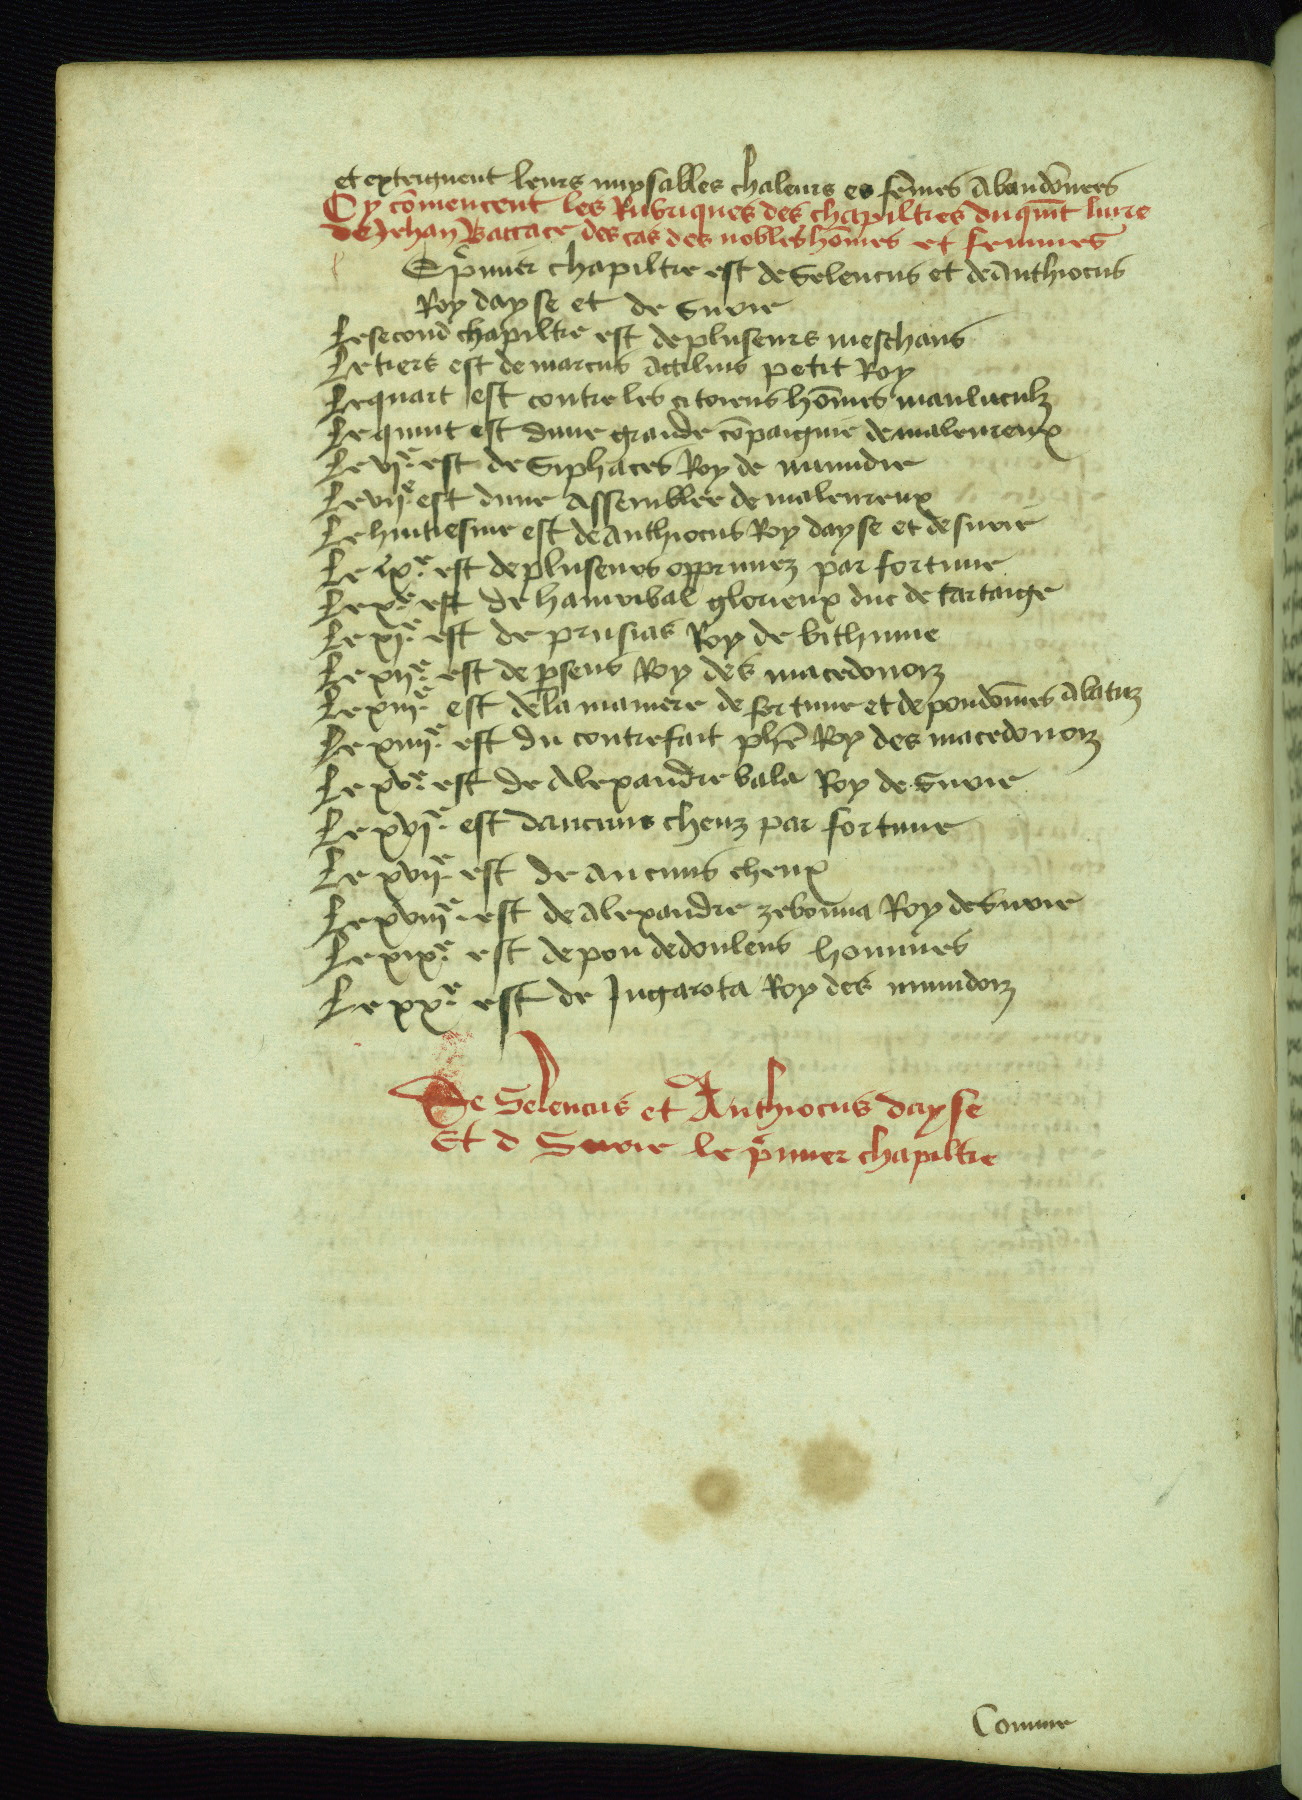 et exteignent leurs nuysables chaleurs es fēmes abandōnees
Cy cōmencent les Rubriques des chapiltres du quīt liure
de Jehan Baccace des cas des nobles hōmes et femmes
E pmier chapiltre est de Seleucus et de Anthiocus
Roy dayse et de Surie
Le second chapiltre est de pluseurs meschans
Le tiers est de marcus Actilius petit Roy
Le quart est contre les citoiens hōmes
Le quint est dune grande cōpaignie de maleureux
Le vjᵉ est de Siphaces Roy de numidie
Le vijᵉ est dune assemblee de maleureux
Le huitiesme est de anthiocus Roy dayse et de surie
Le ixᵉ est de pluseurs opprimez par fortune
Le xᵉ est de hannibal glorieux duc de cartaige
Le xjᵉ est de prusias Roy de bithinie
Le xijᵉ est de pseus Roy des macedonois
Le xiijᵉ est de la maniere de fortune et de pou dōmes abatuz
Le xiiijᵉ est du contrefait phē Roy des macedonois
Le xvᵉ est de Alexandre bala Roy de Surie
Le xvjᵉ est daucuns cheuz par fortune
Le xvijᵉ est de aucuns cheux
Le xviijᵉ est de alexandre zebenna Roy de Surie
Le xixᵉ est de pou de douleus hommes
Le xxᵉ est de Jugurta Roy des numidois
De Seleucus et Anthiocus dayse
Et d Surie le pmier chapiltre
Comme